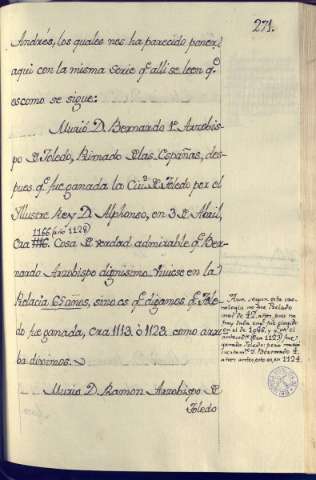 271.
Andrés, los quales nos ha parecido poner
aqui con la misma serie q.e alli se leen q.e
es como se sigue:
Murió D. Bernardo 1.o Arzobis-
po de Toledo, Primado de las Españas, des-
pues q.e fue ganada la Ciu.d de Toledo por el
Illustre Rey D. Alphonso, en 3 de Abril,
1166 (año 1128)
Era Cosa de verdad admirable q.e Ber-
nardo Arzobispo dignissimo viviese en la
Prelacia 65 años, sino es q.e digamos q.e Tole-
do fue ganada, era 1113. ó 1123. como arri-
ba diximos.
Murio D. Ramon Arzobispo de
Toledo
Aun segun esta cro-
nologia no fue Prelado
mas de 42 años, pues no
el de 1086, y
ganada Toledo: pero murió
D. Bernardo 4
años antes, esto es, en 1124.